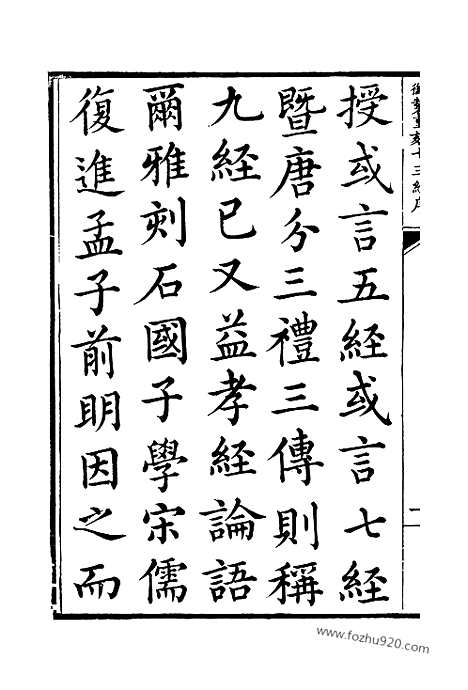 御製重刻十三經序
二
授或言五經或言七經
暨唐分三禮三傳則稱
九經已又益孝經論語
爾雅刻石國子學宋儒
復進孟子前明因之而
www.fozhu920.com